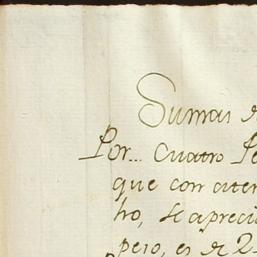 Sumas
Por... Cuatro Pe
que con aten
ho, se apreci
peso, es de 2